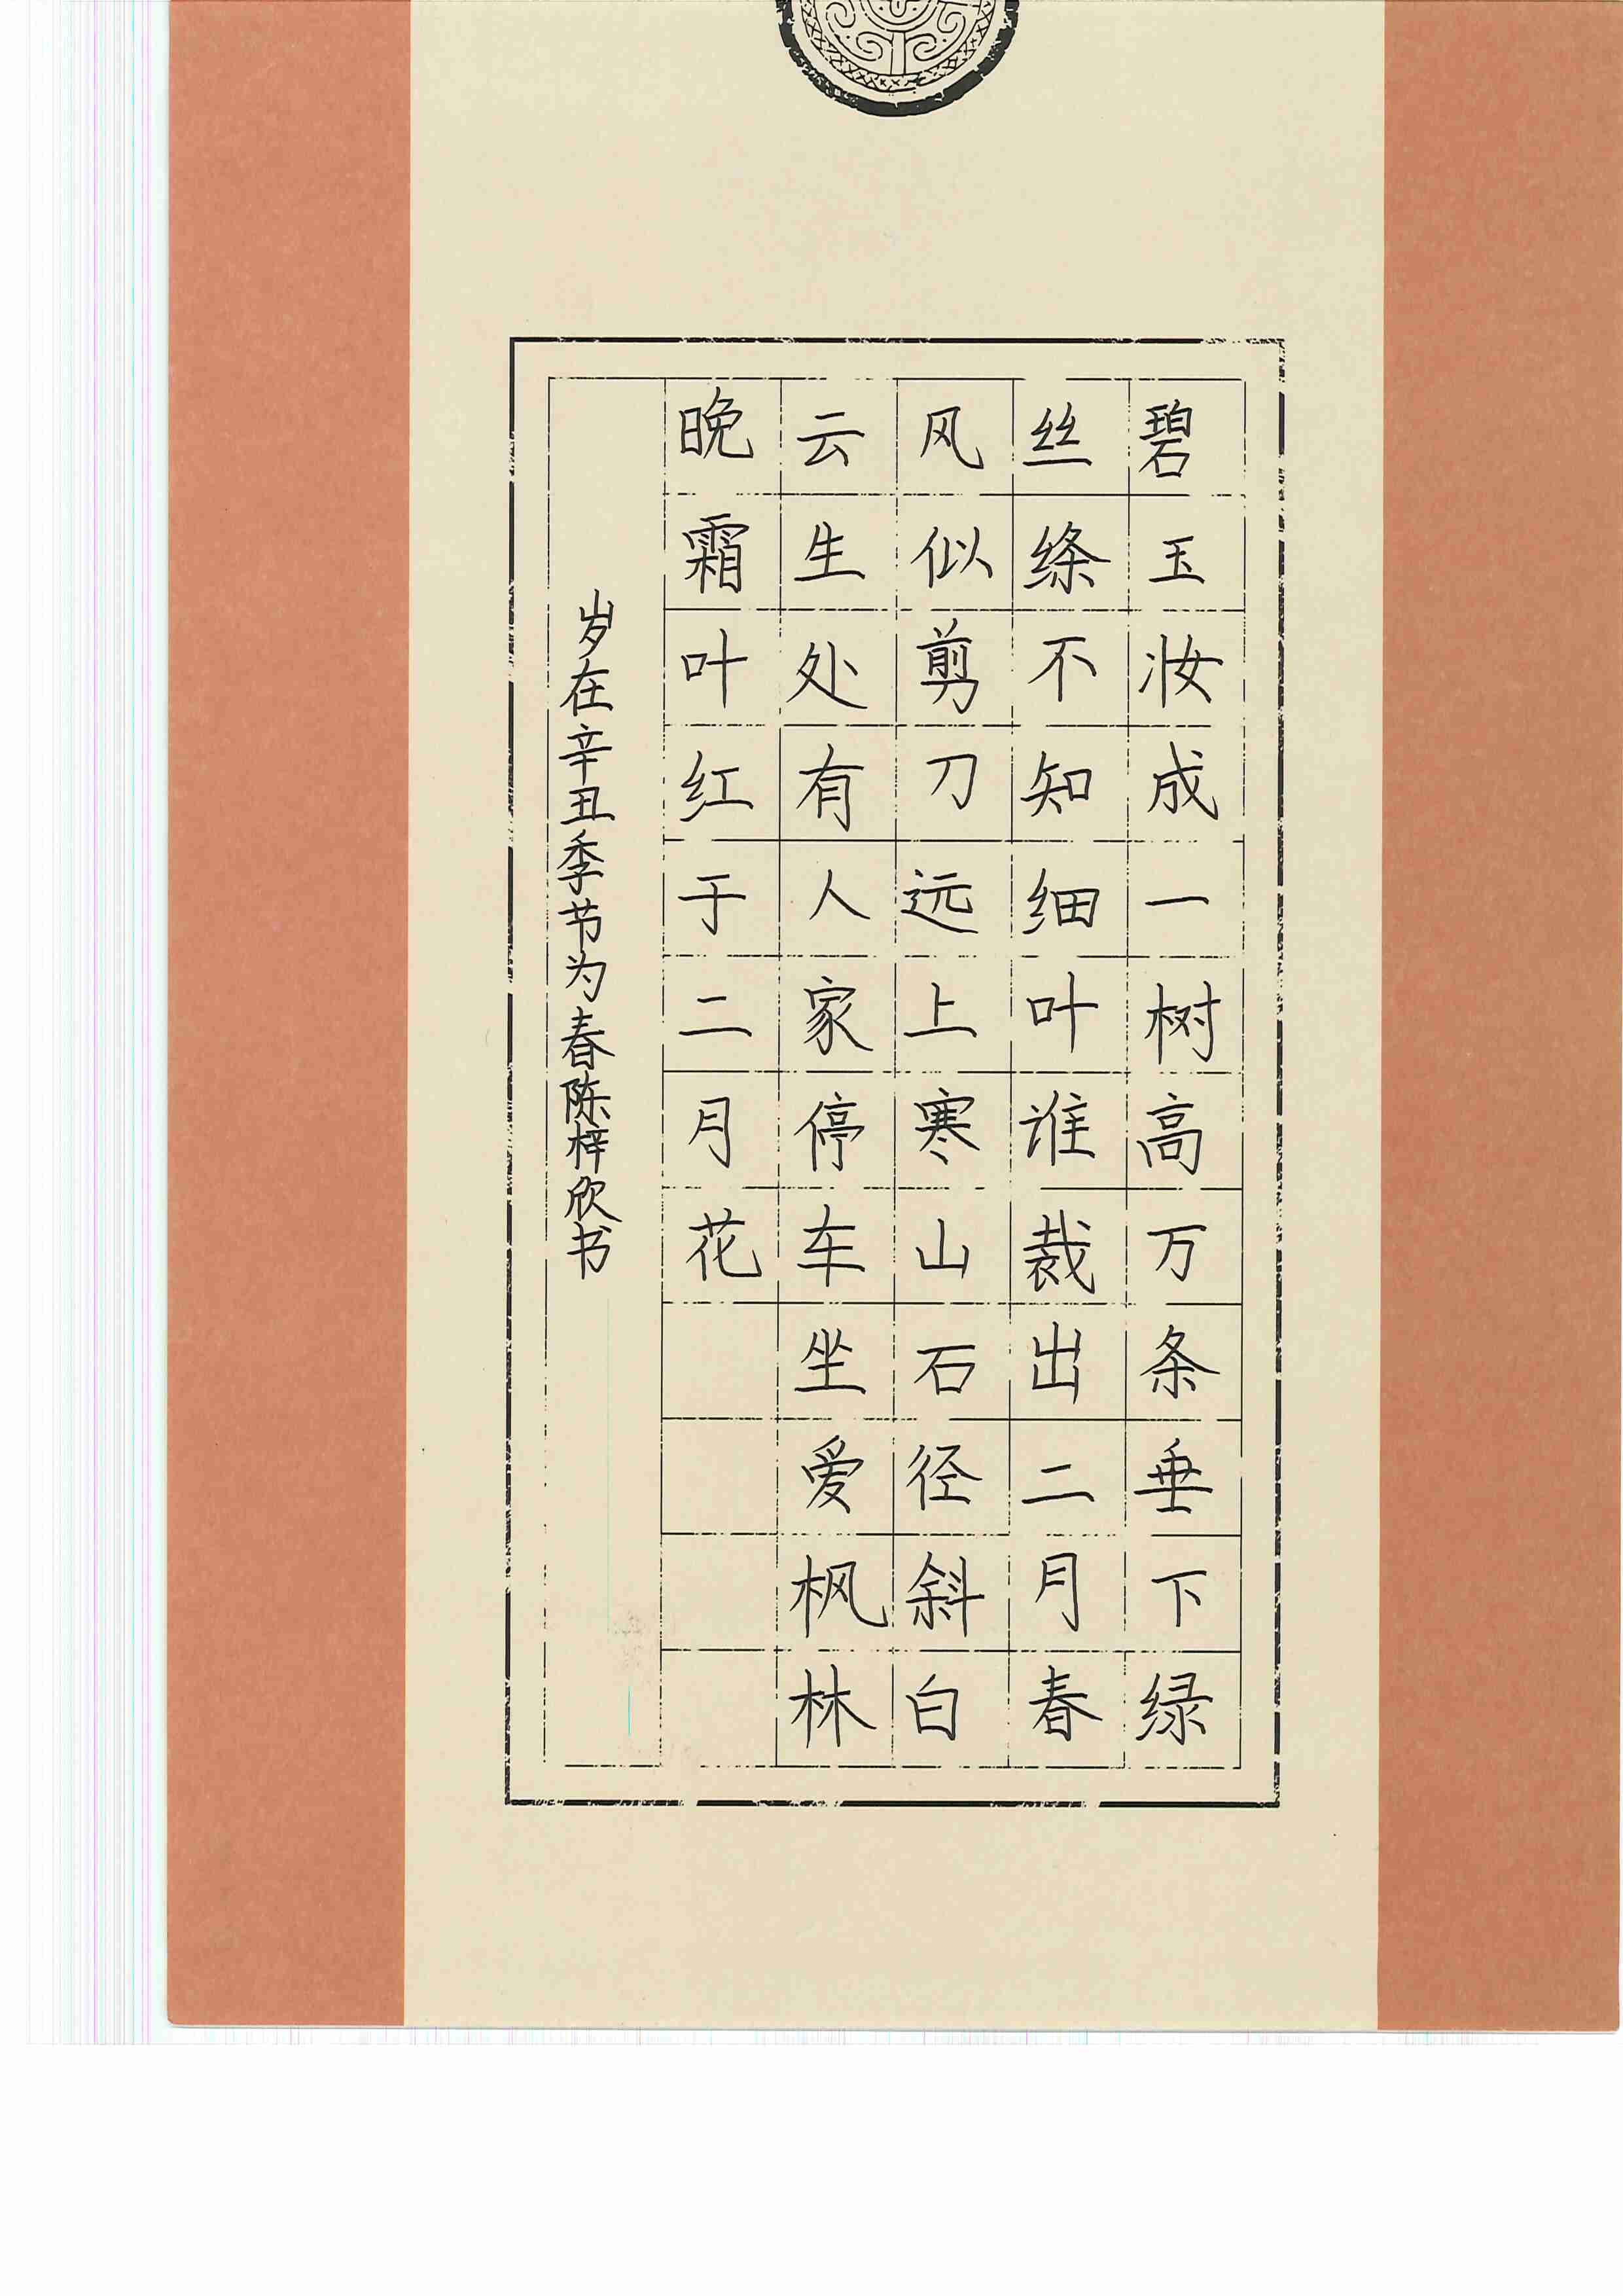 碧玉妆成一树高万条垂下绿
丝绦不知细叶谁裁出二月春
风似剪刀远上寒山石径斜白
云生处有人家停车坐爱枫林
晚霜叶红于二月花
岁在辛丑季节为春陈梓欣书